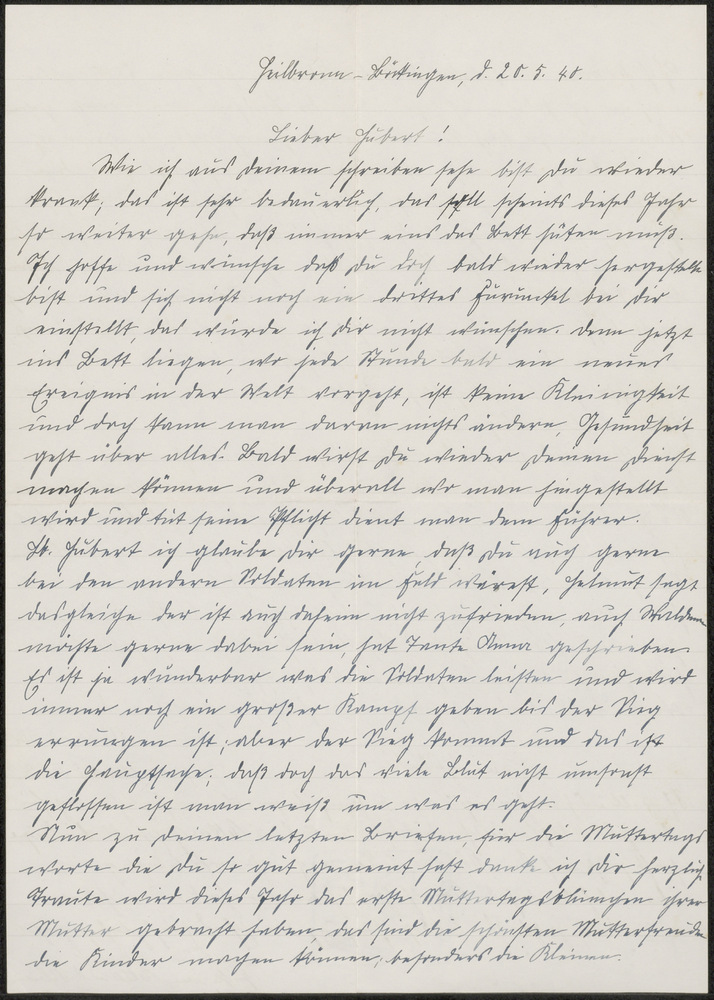 Heilbronn-Böckingen, d. 20. 5. 40.
Lieber Hubert!
Wie ich aus Deinem schreiben sehe bist Du wieder
krank; das ist sehr bedauerlich, das soll scheints dieses Jahr
so weiter gehn, daß immer eins das Bett hüten muß.
Ich hoffe und wünsche daß Du doch bald wieder hergestellt
bist und sich nicht noch ein drittes Furunckel bei Dir
einstellt, das würde ich Dir nicht wünschen. Denn jetzt
ins Bett liegen, wo jede Stunde bald ein neues
Ereignis in der Welt vorgeht, ist keine Kleinigkeit
und doch kann man daran nichts ändern, Gesundheit
geht über alles. Bald wirst Du wieder Deinen Dienst
machen können und überall wo man hingestellt
wird und tut seine Pflicht dient man dem Führer.
Lb. Hubert ich glaube Dir gerne, daß Du auch gerne
bei den andern Soldaten im Feld wärest, Helmut sagt
dasgleiche der ist auch daheim nicht zufrieden, auch
möchte gerne dabei sein, hat Tante Anna geschrieben.
Es ist ja wunderbar was die Soldaten leisten und wird
immer noch ein großer Kampf geben bis der Sieg
errungen ist; aber der Sieg kommt und das ist
die Hauptsache; daß doch das viele Blut nicht umsonst
geflossen ist man weiß um was es geht.
Nun zu Deinen letzten Briefen, für die Muttertags
worte die Du so gut gemeint hast danke ich Dir herzlich
Traute wird dieses Jahr das erste Muttertagsblümchen ihrer
Mutter gebracht haben, das sind die schönsten Mutterfreuden
die Kinder machen können; besonders die Kleinen.